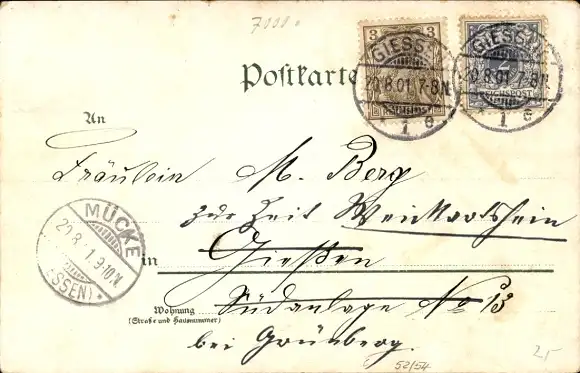 7000
3
GIESSEN
29.8.01.7-8N.
1 e
2
REICHSPOST
GIESSEN
29.8.01.7-8N.
1 e
Postkarte
An
Fräulein M. Berg
zur Zeit Weickartshein
MÜCKE
29.8.1.9-10N.
(HESSEN) *
in Gießen
Wohnung
(Straße und Hausnummer)
Südanlage No 13
bei Grünberg.
52/54
25